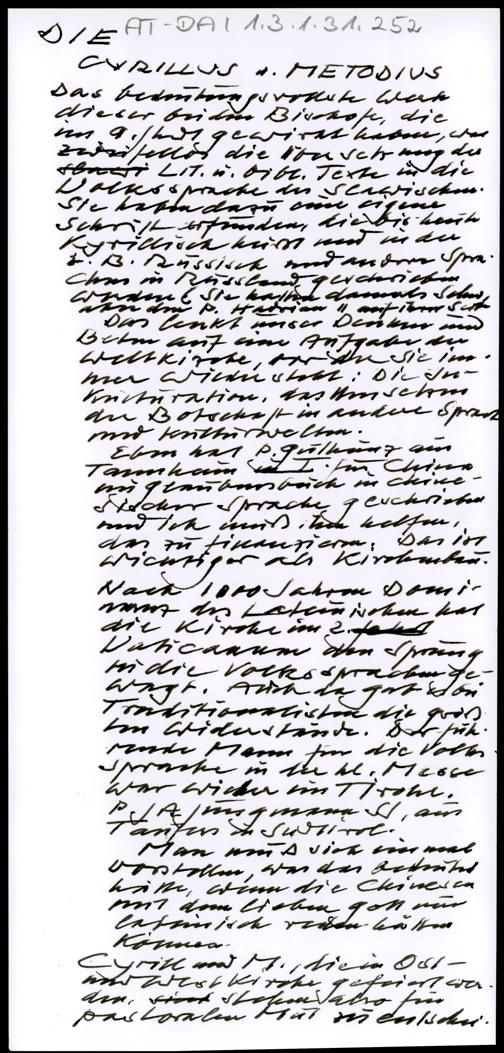 AT-DAI 1.3.1.31.252
DIE
CYRILLUS u. METODIUS
Das bedeutungsvollste Werk
dieser beiden Bischöfe, die
im 9. Jhdt gewirkt haben, war
zweifellos die Übersetzung der
Lit. u. bibl. Texte in die
Volkssprache der Slawischen.
Sie haben dazu eine eigene
Schrift erfunden, die bis heute
Kyrillisch heisst und in der
z. B. Russisch und andere Spra-
chen in Russland geschrieben
werden (Sie hatten damals schon
aber den P. Hadrian II auf ihrer Seite
Das lenkt unser Denken und
Beten auf eine Aufgabe der
Weltkirche, vor der sie im-
mer wieder steht: Die In-
kulturation, das Umsetzen
der Botschaft in andere Sprach
und Kulturwelten.
Eben hat P. aus
Tannheim für China
ein Glaubensbuch in chine-
sischer Sprache geschrieben
und ich muß ihm helfen,
das zu finanzieren. Das ist
wichtiger als Kirchenbau.
Nach 1000 Jahren Domi-
nanz des Lateinischen hat
die Kirche im 2.
Vaticanum den Sprung
in die Volkssprachen ge-
wagt. Auch da gab es bei
Traditionalisten die größ-
ten Widerstände. Der füh-
rende Mann für die Volks-
sprache in der hl. Messe
war wieder ein Tiroler.
P. JA Jungmann SJ, aus
Taufers in Südtirol.
Man muß sich einmal
vorstellen, was das bedeutet
hätte, wenn die Chinesen
mit dem lieben Gott nur
lateinisch reden hätten
können.
Cyrill und M., die in Ost-
und Westkirche gefeiert wer-
den, stehen also für
pastoralen Mut